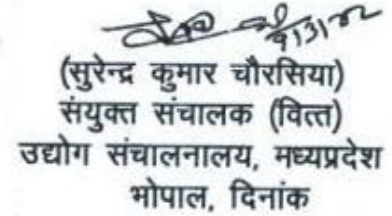 (सुरेन्द्र कुमार चौरसिया)
संयुक्त संचालक (वित्त)
उद्योग संचालनालय, मध्यप्रदेश
भोपाल, दिनांक